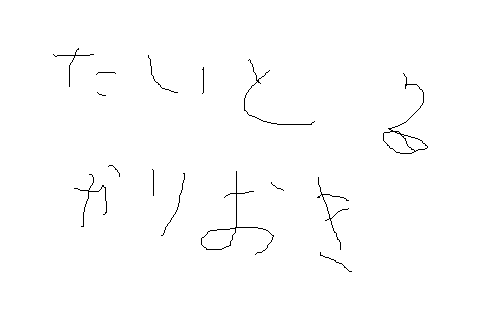 たいとる
かりおき